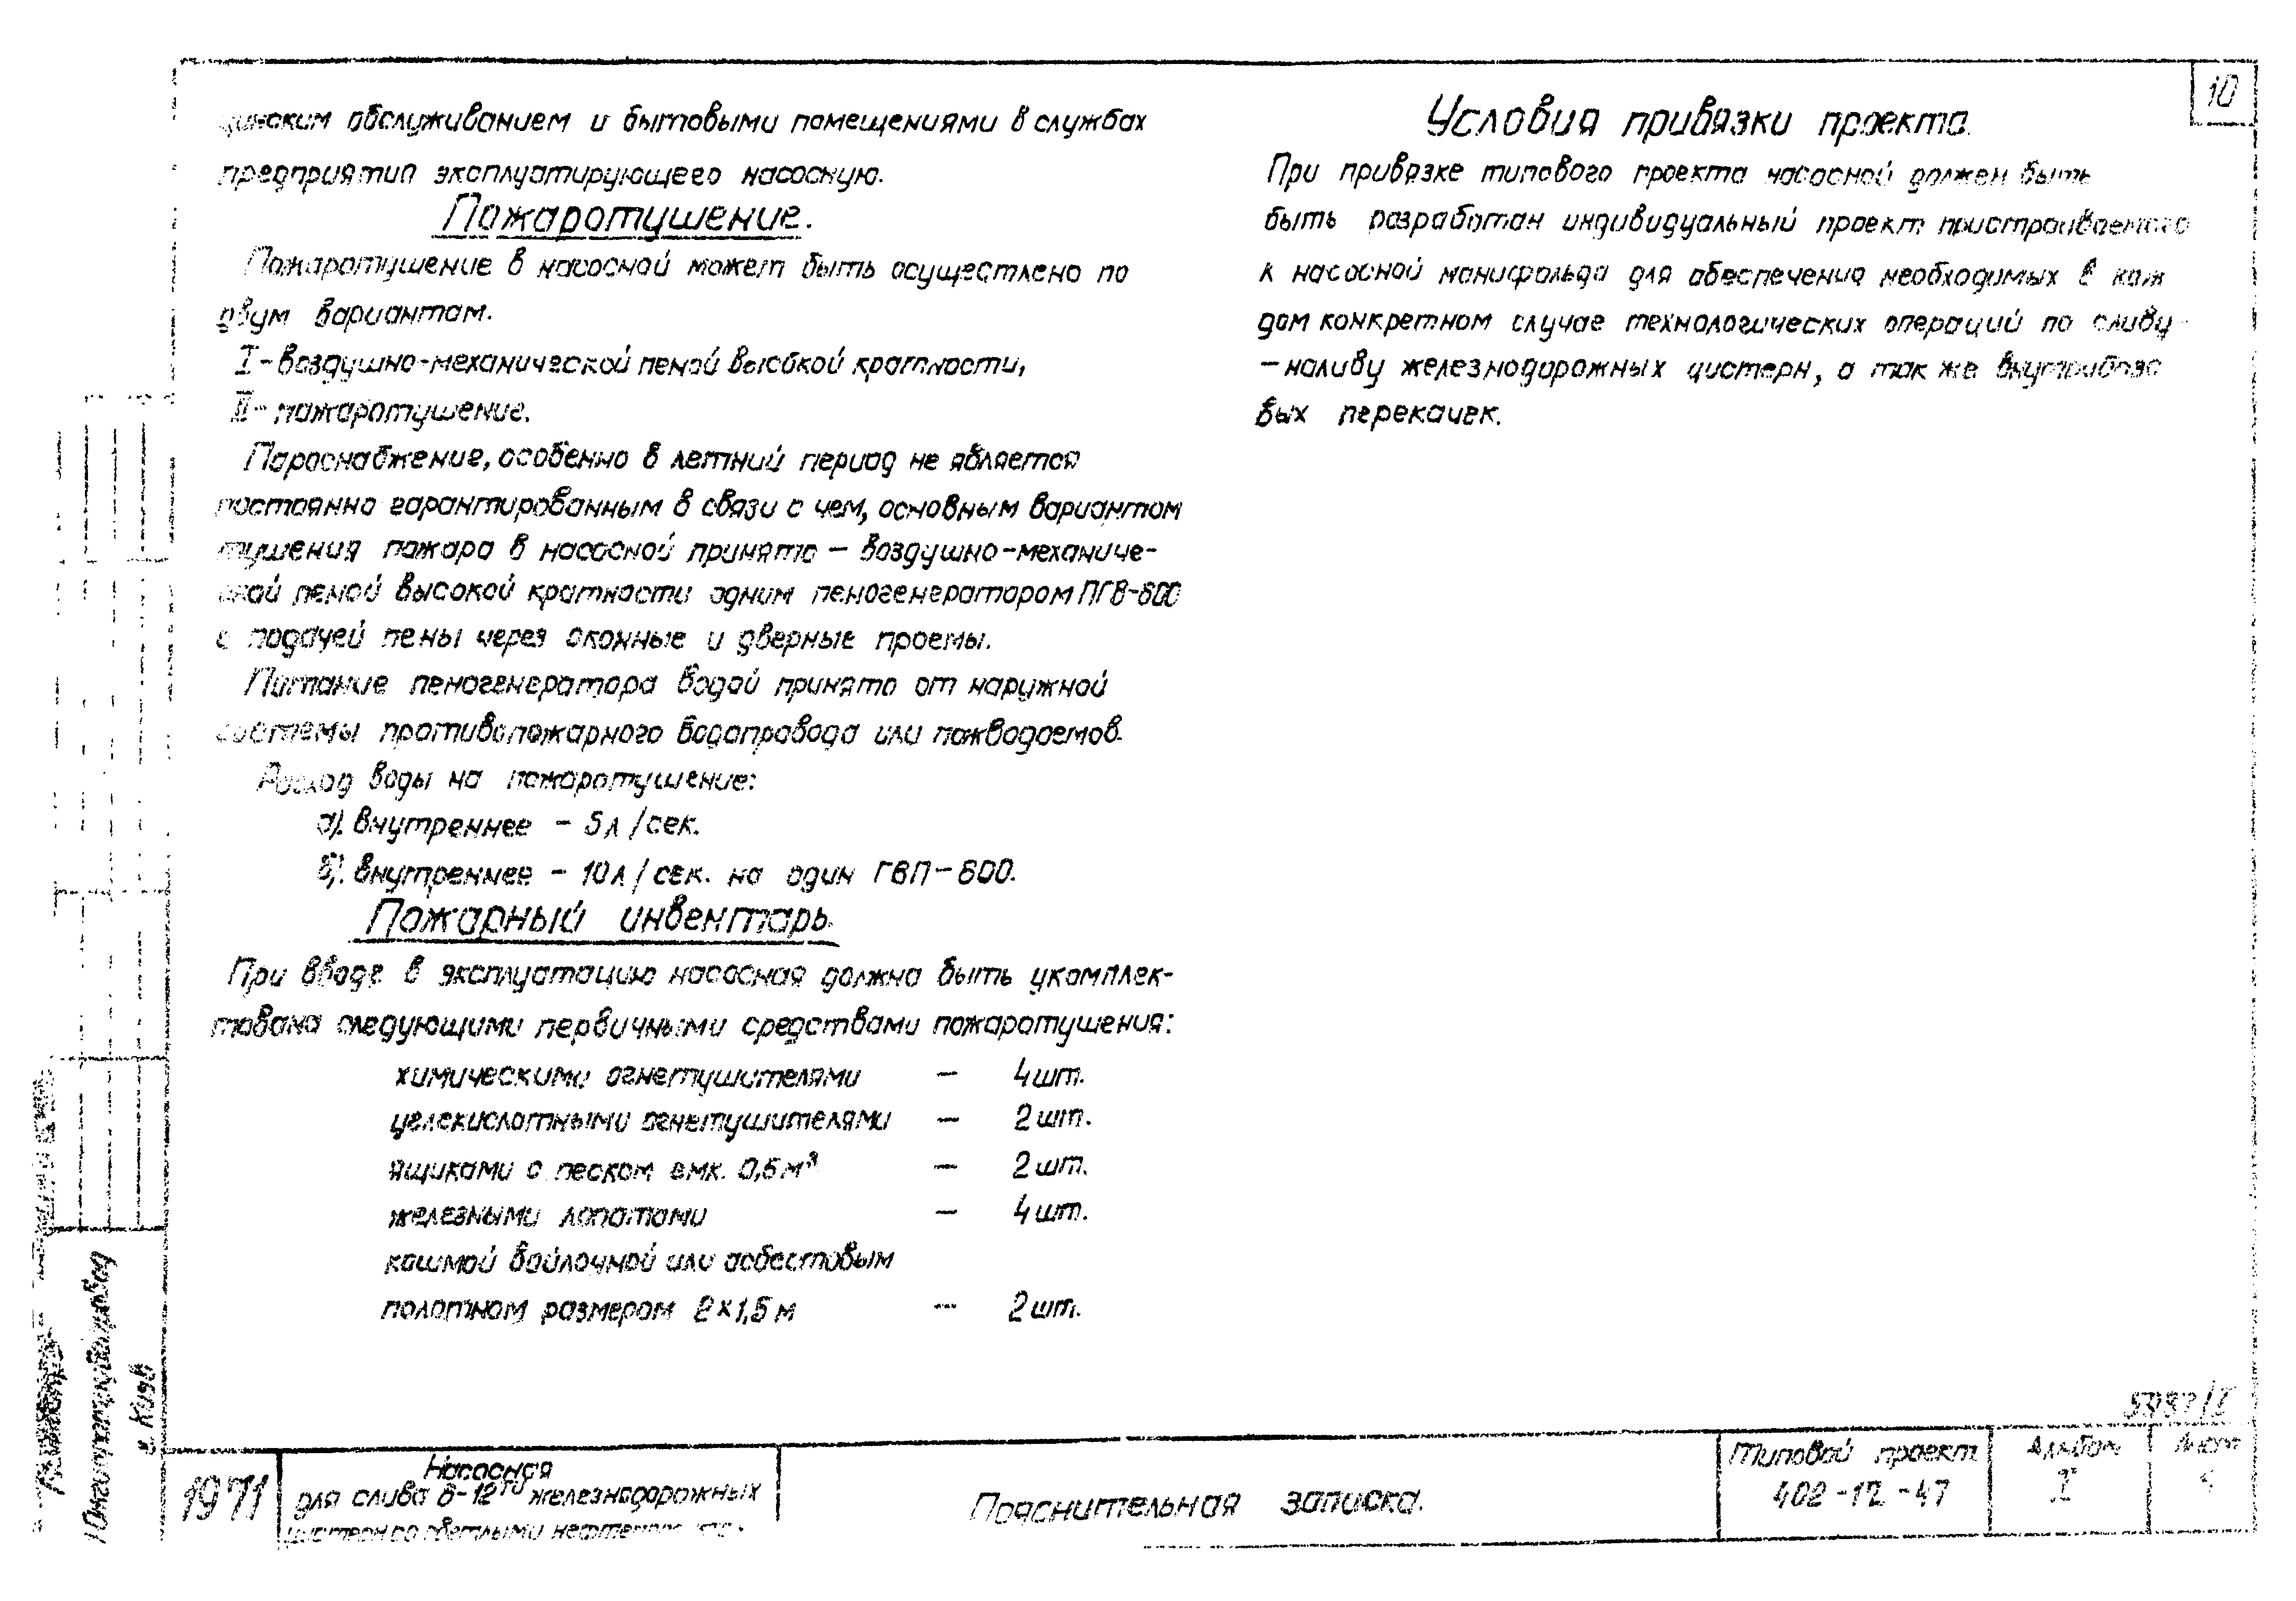 обслуживанием и бытовыми помещениями в службах
предприятия эксплуатирующего насосную.
Пожаротушение.
Пожаротушение в насосной может быть осуществлено по
двум вариантам.
I - воздушно-механической пеной высокой кратности,
II - пожаротушение.
Пароснабжение, особенно в летний период не является
постоянно гарантированным в связи с чем, основным вариантом
тушения пожара в насосной принято - воздушно-механиче-
ской пеной высокой кратности одним пеногенератором ПГВ-600
с подачей пены через оконные и дверные проемы.
Питание пеногенератора водой принято от наружной
системы противопожарного водопровода или пожводоемов.
Расход воды на пожаротушение:
а). внутреннее - 5л/сек.
б). внутреннее - 10л/сек. на один ГВП-600.
Пожарный инвентарь.
При вводе в эксплуатацию насосная должна быть укомплек-
тована следующими первичными средствами пожаротушения:
химическими огнетушителями - 4шт.
углекислотными огнетушителями - 2шт.
ящиками с песком емк. 0,5м³ - 2шт.
железными лопатами - 4шт.
кошмой войлочной или асбестовым
полотном размером 2×1,5м - 2шт.
10
Условия привязки проекта.
При привязке типового проекта насосной должен быть
быть разработан индивидуальный проект пристраиваемого
к насосной манифольда для обеспечения необходимых в каж
дом конкретном случае технологических операций по сливу-
-наливу железнодорожных цистерн, а так же внутрибазо
вых перекачек.
Южгипронефтепровод
г. Киев
1971
Насосная
для слива 8-12ти железнодорожных
цистерн со светлыми
Пояснительная записка.
Типовой проект
402-12-47
Альбом
I
Лист